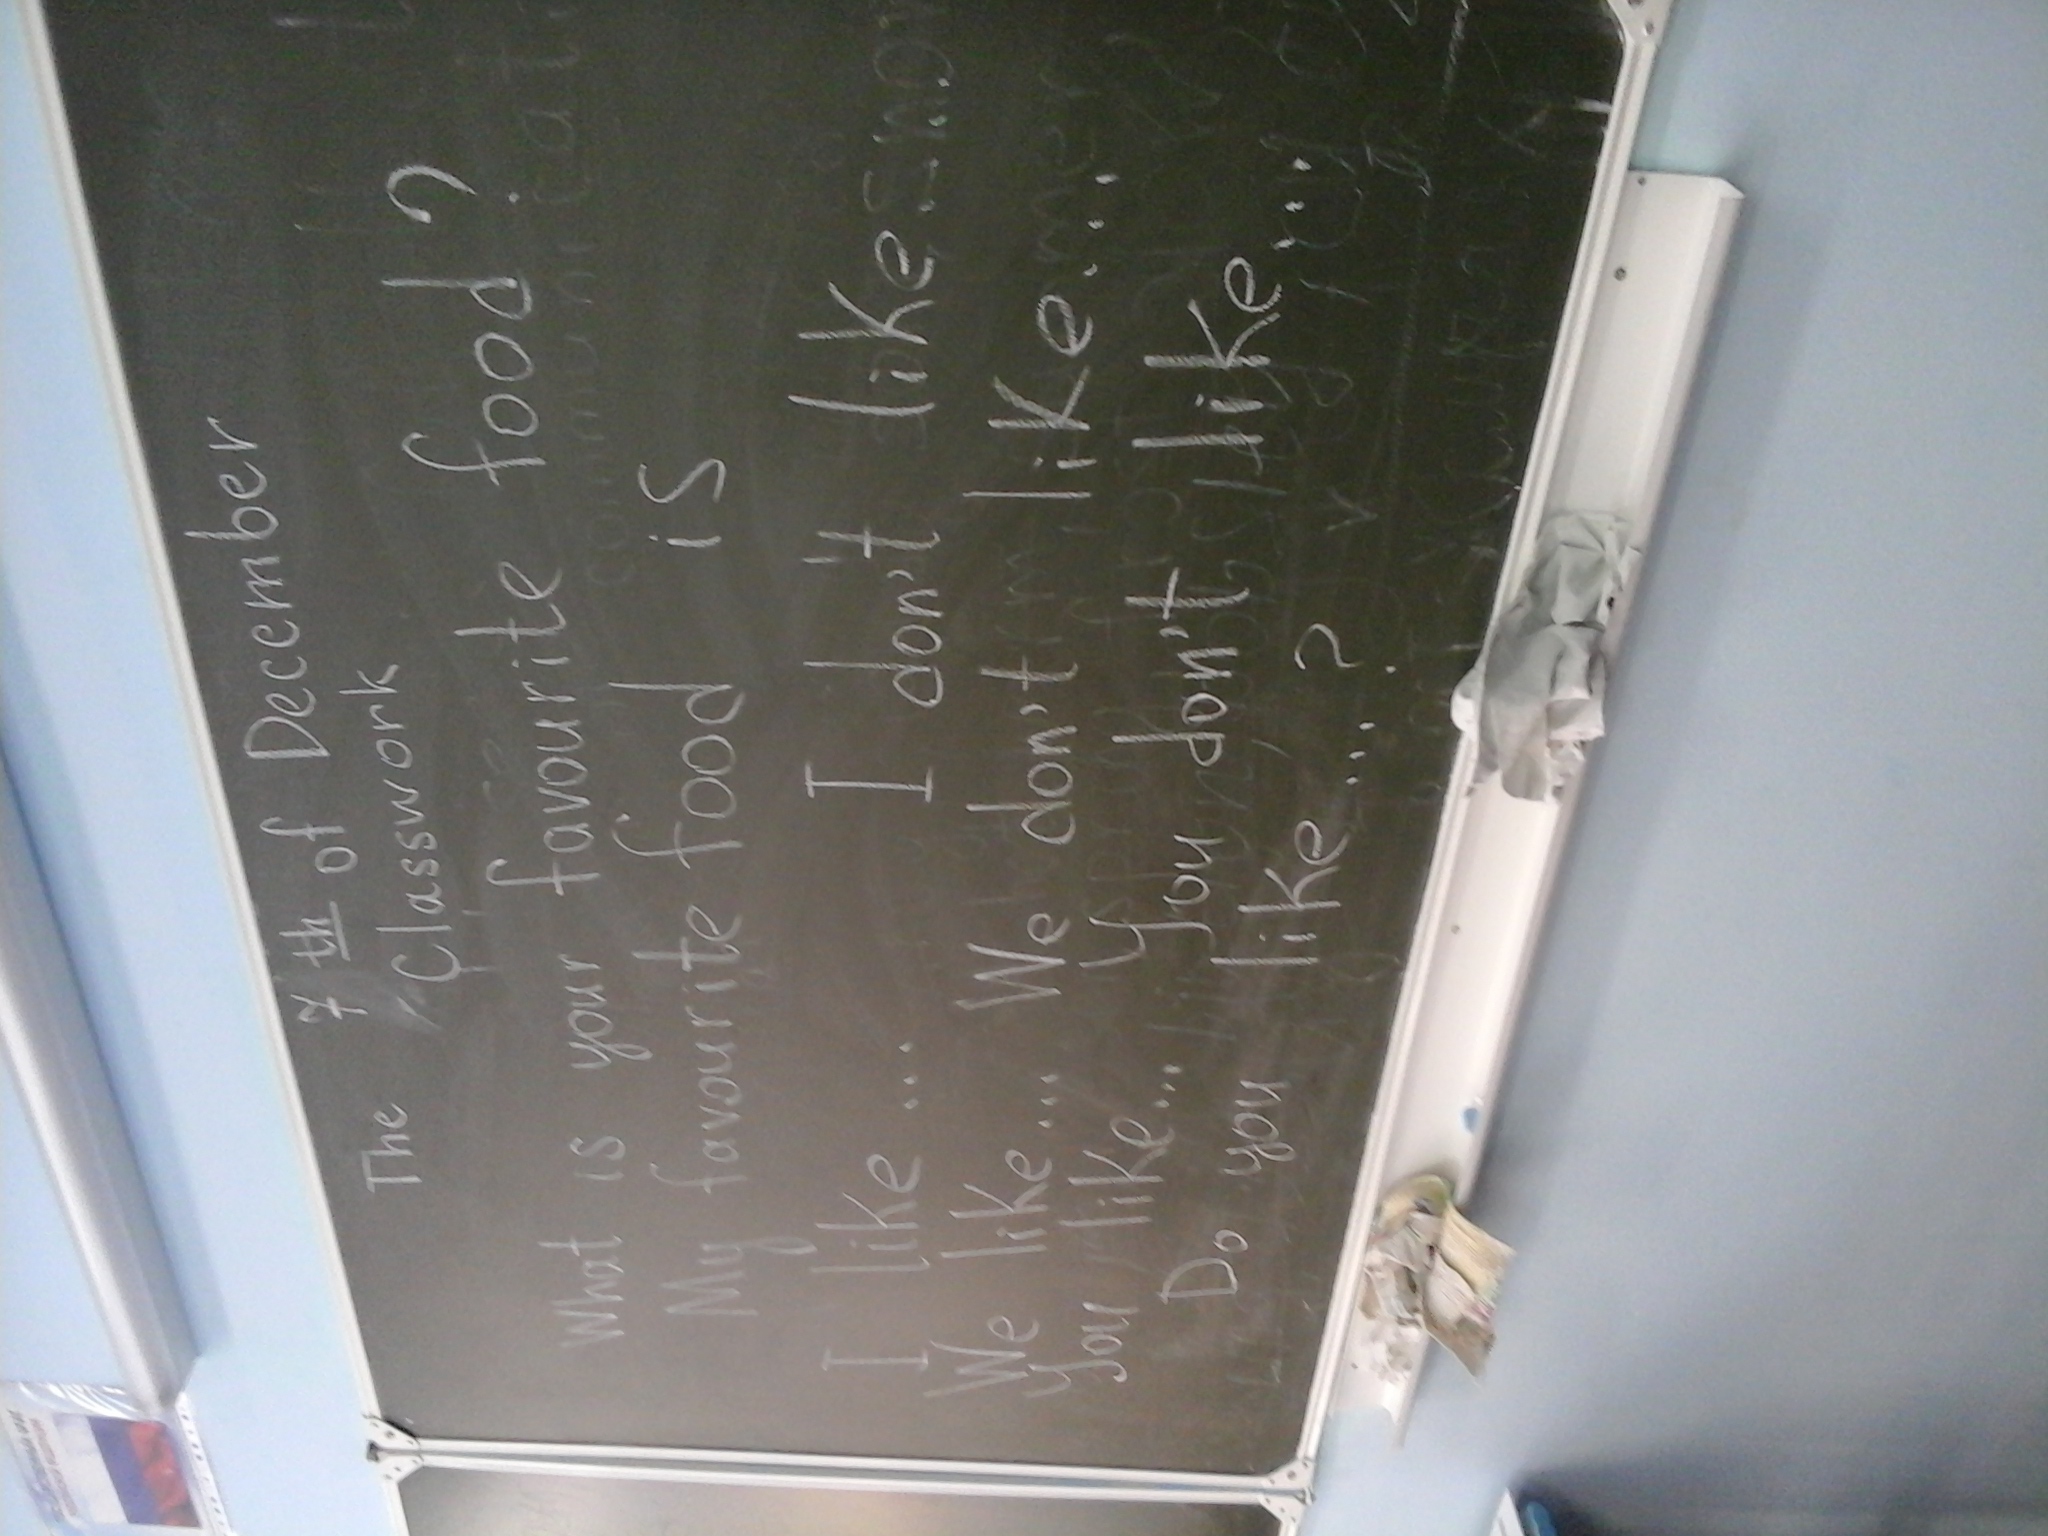 The 7th of December
Classwork
What is your favourite food?
My favourite food is
I like... I don't like...
We like... We don't like...
You like... You don't like...
Do you like...?